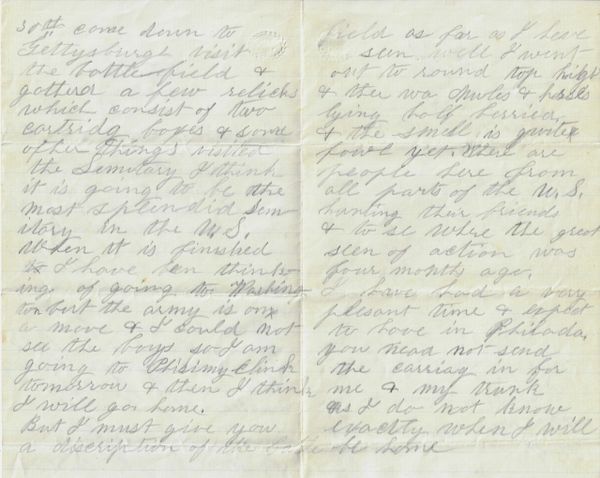 30th come down to
Gettysburge visit
the battle field &
gatherd a few relicks
which consist of two
cartridg boxes & some
other things visited
the Semitary I think
it is going to be the
most splendid Sem-
itory in the U.S.
when it is finished
I have ben think-
ing of going to Washing
ton but the army is on
a move & I could not
see the boys so I am
going to
tomorrow & then I think
I will go home.
But I must give you
a discription of the battle
field as far as I have
seen well I went
out to round top
& ther wa Mules & horses
lying half berried,
& the smell is quite
fowl yet. There are
people here from
all parts of the U.S.
hunting their friends
& to se where the great
seen of action was
four month ago.
I have had a very
plesant time & expect
to have in Philada,
you nead not send
the carriag in for
me & my trunk
as I do not know
exactly when I will
be home